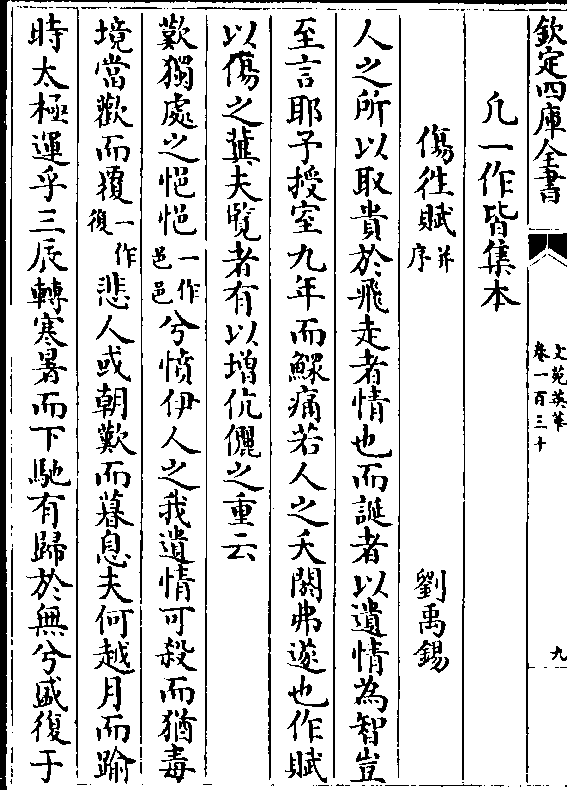 欽定四庫全書
文苑英華
卷一百三十
九
凡一作皆集本
傷徃賦并序
劉禹錫
人之所以取貴於飛走者情也而誕者以遺情為智豈
至言耶予授室九年而鰥痛若人之夭閼弗遂也作賦
以傷之冀夫覽者有以增伉儷之重云
歎獨處之悒悒一作邑邑兮憤伊人之我遺情可殺而猶毒
境當歡而覆一作復悲人或朝歎而暮息夫何越月而踰
時太極運乎三辰轉寒暑而下馳有歸於無兮盛復于